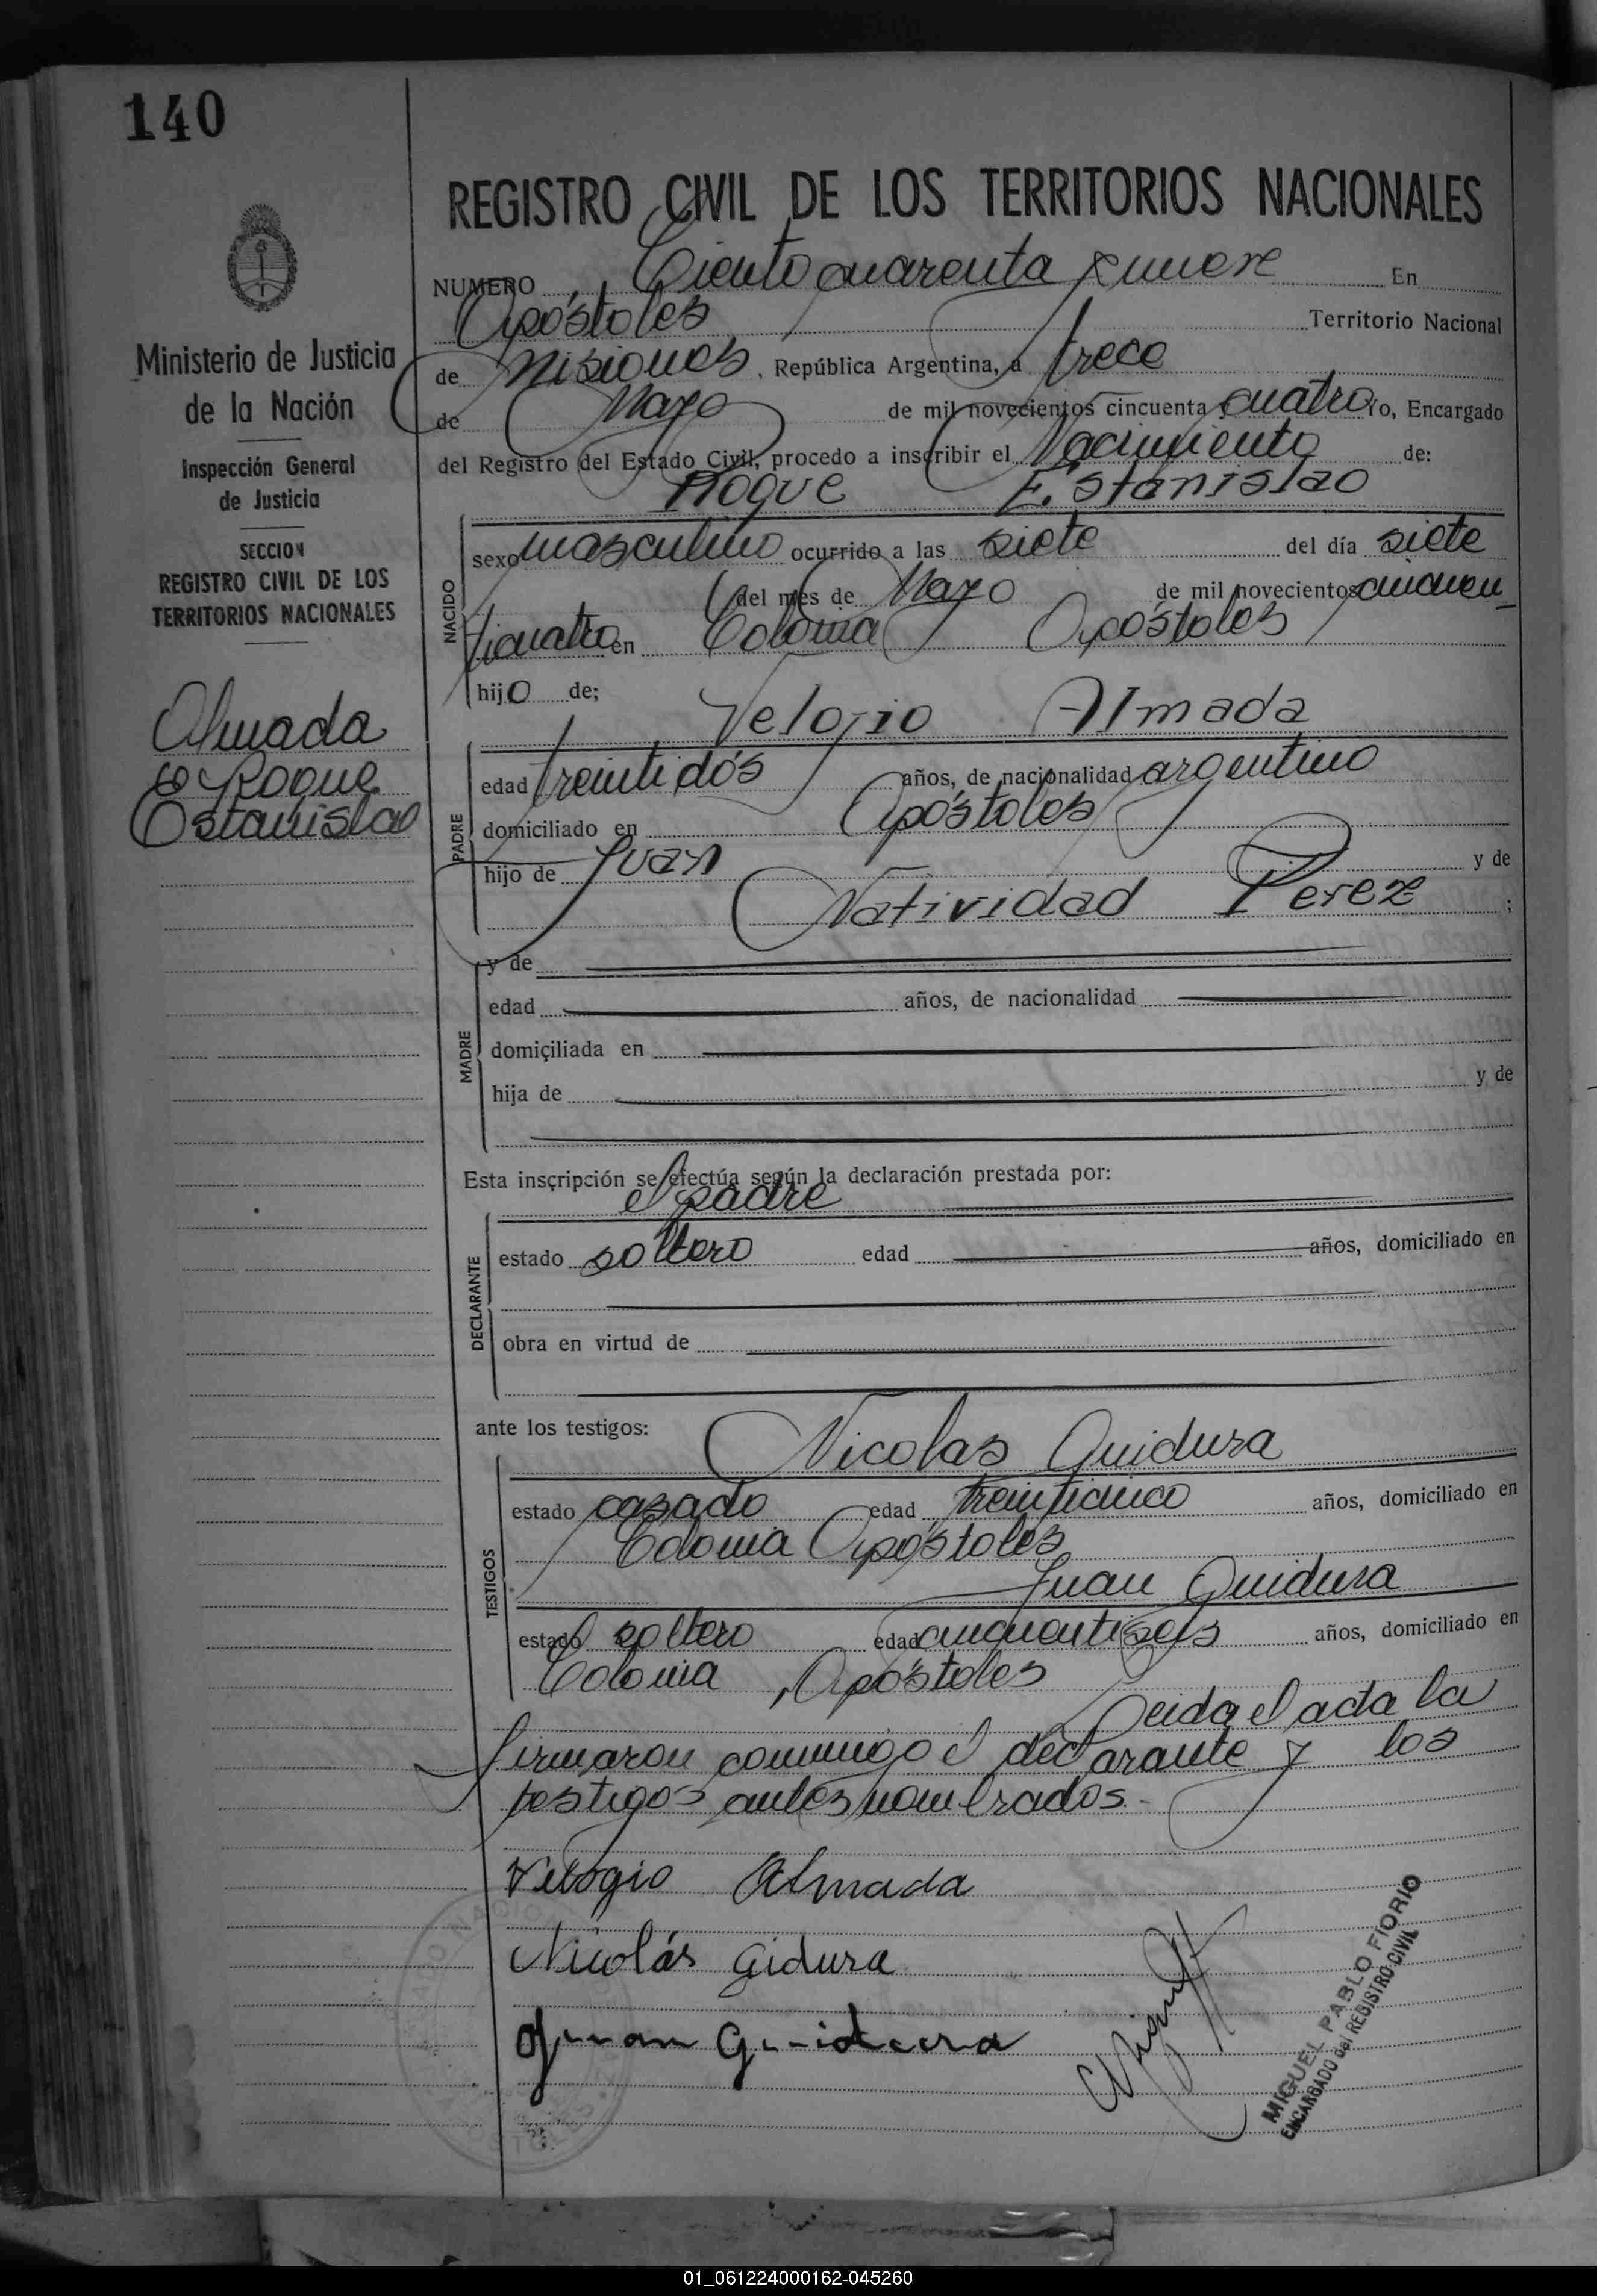 140
REGISTRO CIVIL DE LOS TERRITORIOS NACIONALES
Ministerio de Justicia
de la Nación
Inspección General
de Justicia
SECCION
REGISTRO CIVIL DE LOS
TERRITORIOS NACIONALES
Almada
Roque
Estanislao
NUMERO Ciento cuarenta y nueve En
Apóstoles Territorio Nacional
de Misiones, República Argentina, a trece
de Mayo de mil novecientos cincuenta y cuatro Yo, Encargado
del Registro del Estado Civil, procedo a inscribir el Nacimiento de:
Roque Estanislao
NACIDO
sexo masculino ocurrido a las siete del día siete
del mes de Mayo de mil novecientos cincuen
ticuatro en Colonia Apóstoles
hijo de;
Velogio Almada
PADRE
edad treintidós años, de nacionalidad argentino
domiciliado en Apóstoles
hijo de Juan y de
Natividad Perez ;
MADRE
y de
edad años, de nacionalidad
domiciliada en
hija de y de
Esta inscripción se efectúa según la declaración prestada por:
el padre
DECLARANTE
estado soltero edad años, domiciliado en
obra en virtud de
ante los testigos:
Nicolas Guidura
TESTIGOS
estado casado edad treinticinco años, domiciliado en
Colonia Apóstoles
Juan Guidura
estado soltero edad cincuentiseis años, domiciliado en
Colonia Apóstoles
Leida el acta la
firmaron conmigo el declarante y los
testigos antes nombrados.-
Velogio Almada
Nicolás Gidura
Juan Guidura
MIGUEL PABLO FIORIO
ENCARGADO del REGISTRO CIVIL
01_061224000162-045260